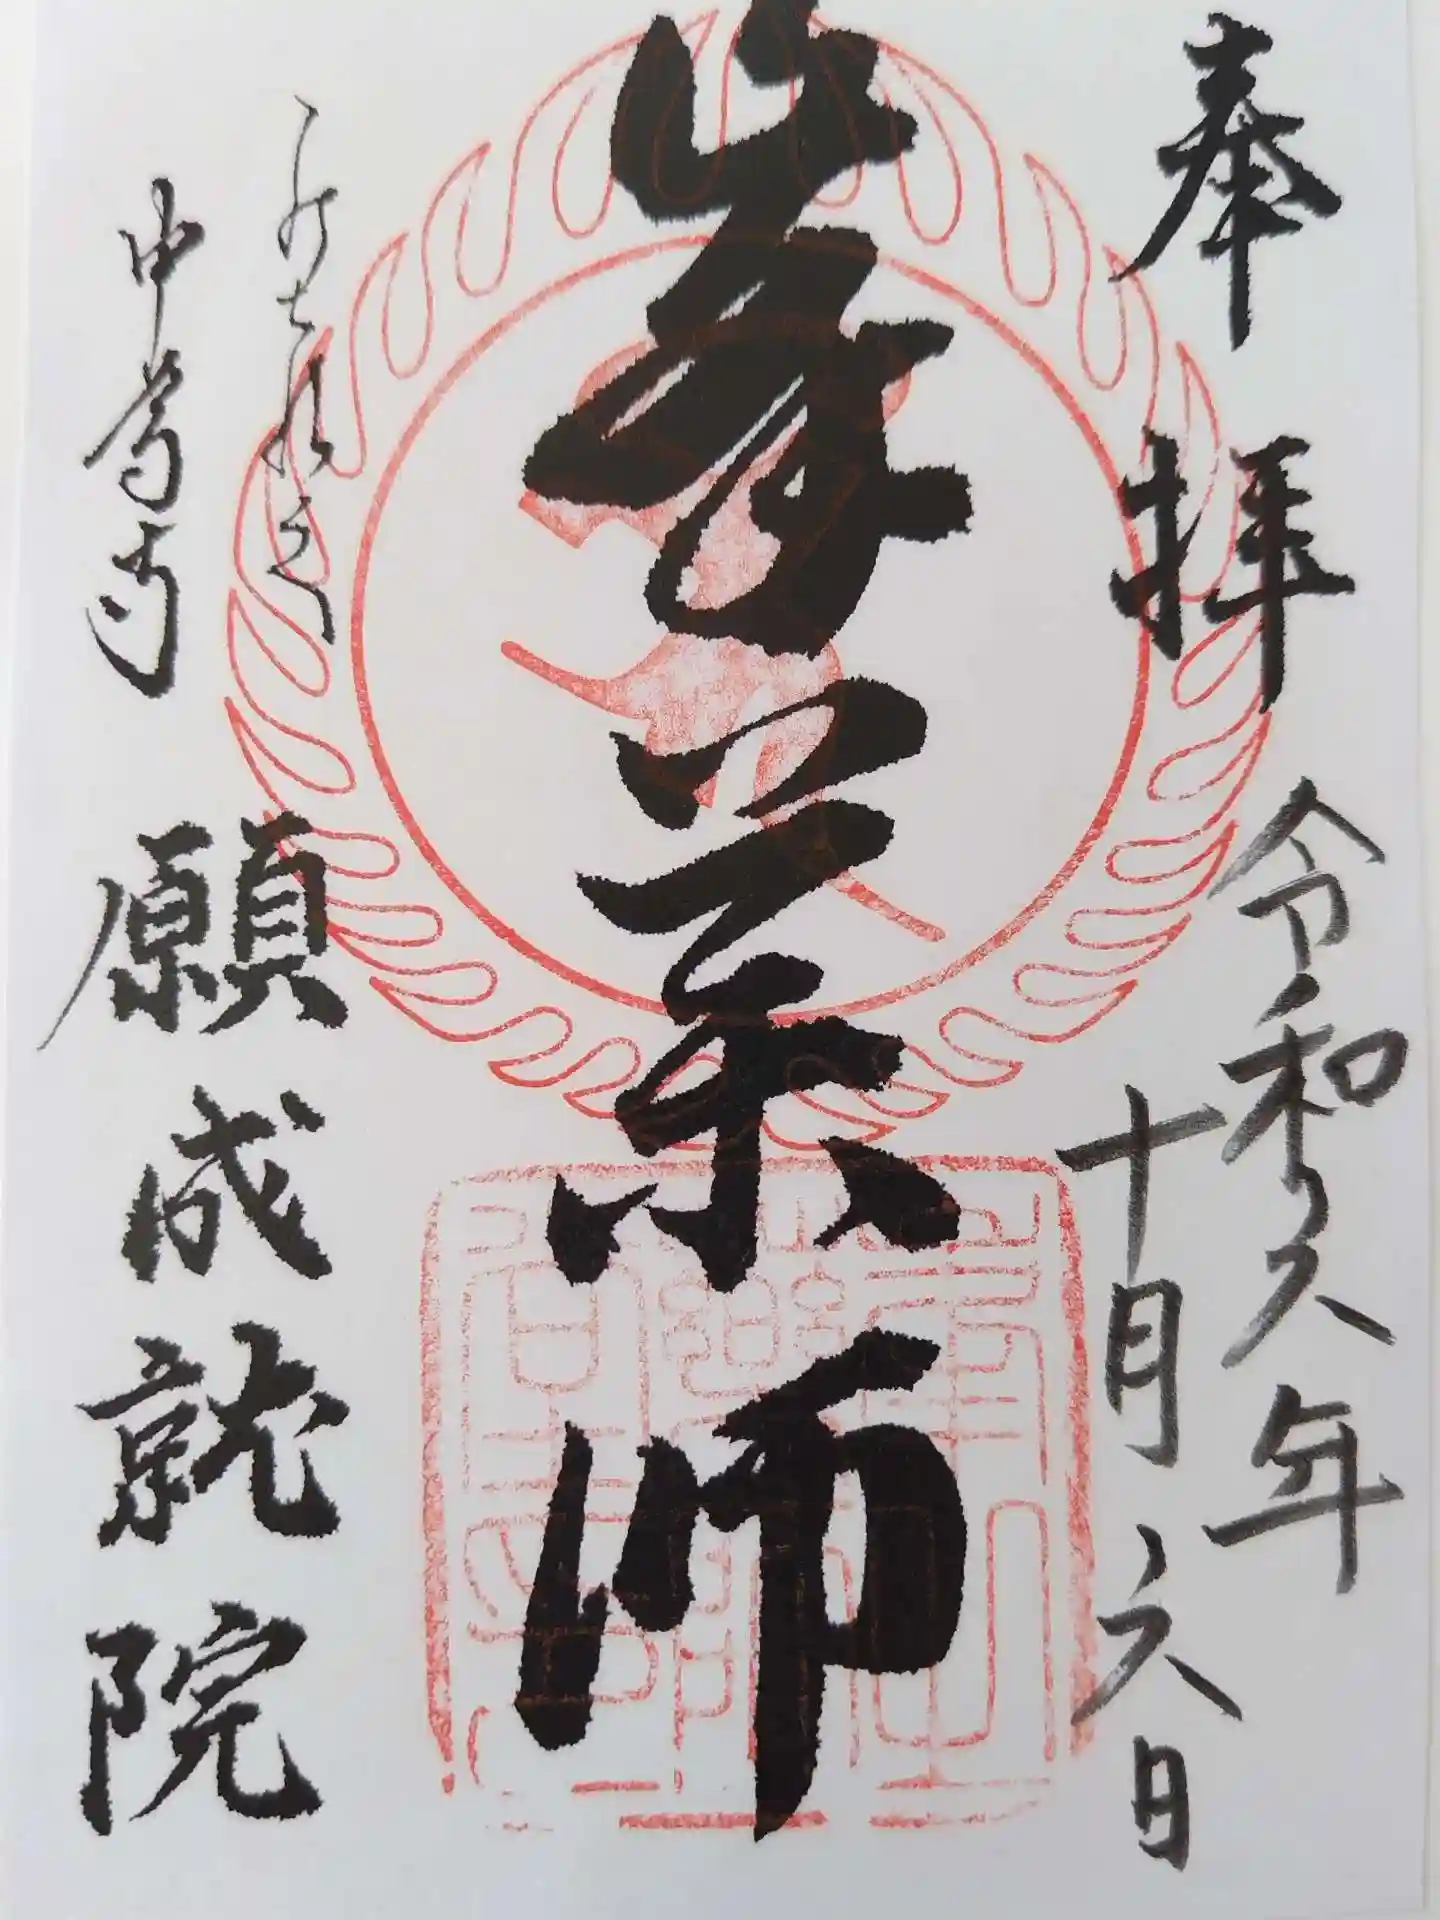 奉拝
令和六年
十月六日
峯薬師
中尊寺
願成就院